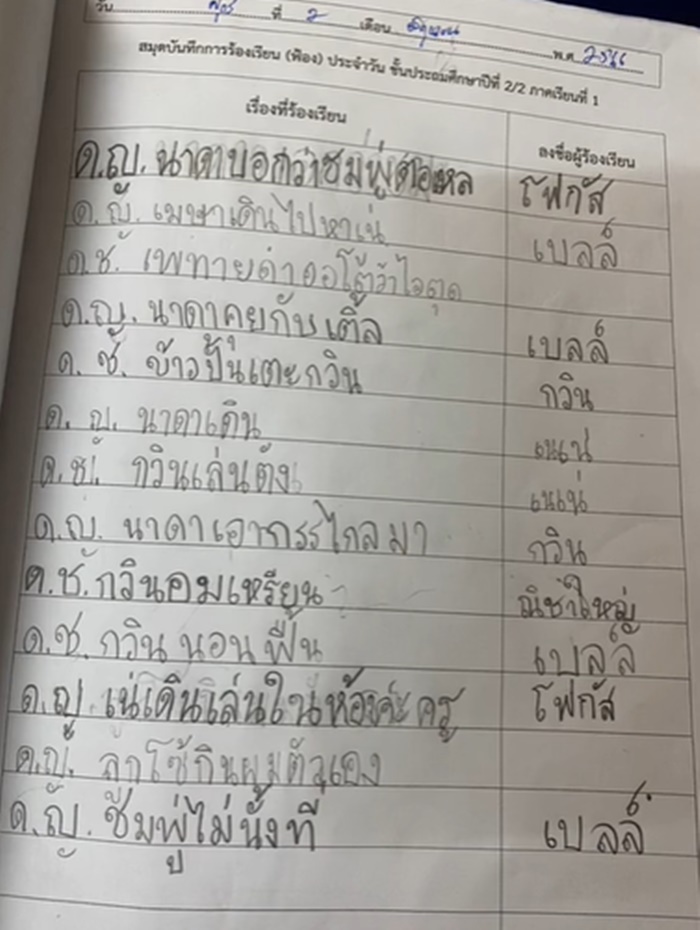 วัน ศุกร์ ที่ 2 เดือน มิถุนายน พ.ศ. 2566
สมุดบันทึกการร้องเรียน (ฟ้อง) ประจำวัน ชั้นประถมศึกษาปีที่ 2/2 ภาคเรียนที่ 1
เรื่องที่ร้องเรียน ลงชื่อผู้ร้องเรียน
ด.ญ. นาดาบอกว่าชมพู่ตอแหล โฟกัส
ด.ญ. เมษาเดินไปหาเน่ เบลล์
ด.ช. เพทายด่าออโต้ว่าไอตุด
ด.ญ. นาดาคุยกับเติ้ล เบลล์
ด. ช. ข้าวปั้นเตะกวิน กวิน
ด. ญ. นาดาเดิน เนเน่
ด.ช. กวินเล่นดัง เนเน่
ด.ญ. นาดาเอากรรไกลมา กวิน
ด.ช. กวินอมเหรียญ ณิชาใหญ่
ด.ช. กวิน นอนฟื้น เบลล์
ด.ญ. เน่เดินเล่นในห้องค่ะครู โฟกัส
ด.ญ. ลูกโซ้กินผมตัวเอง
ด.ญ. ชมพู่ไม่นั่งที่ เบลล์